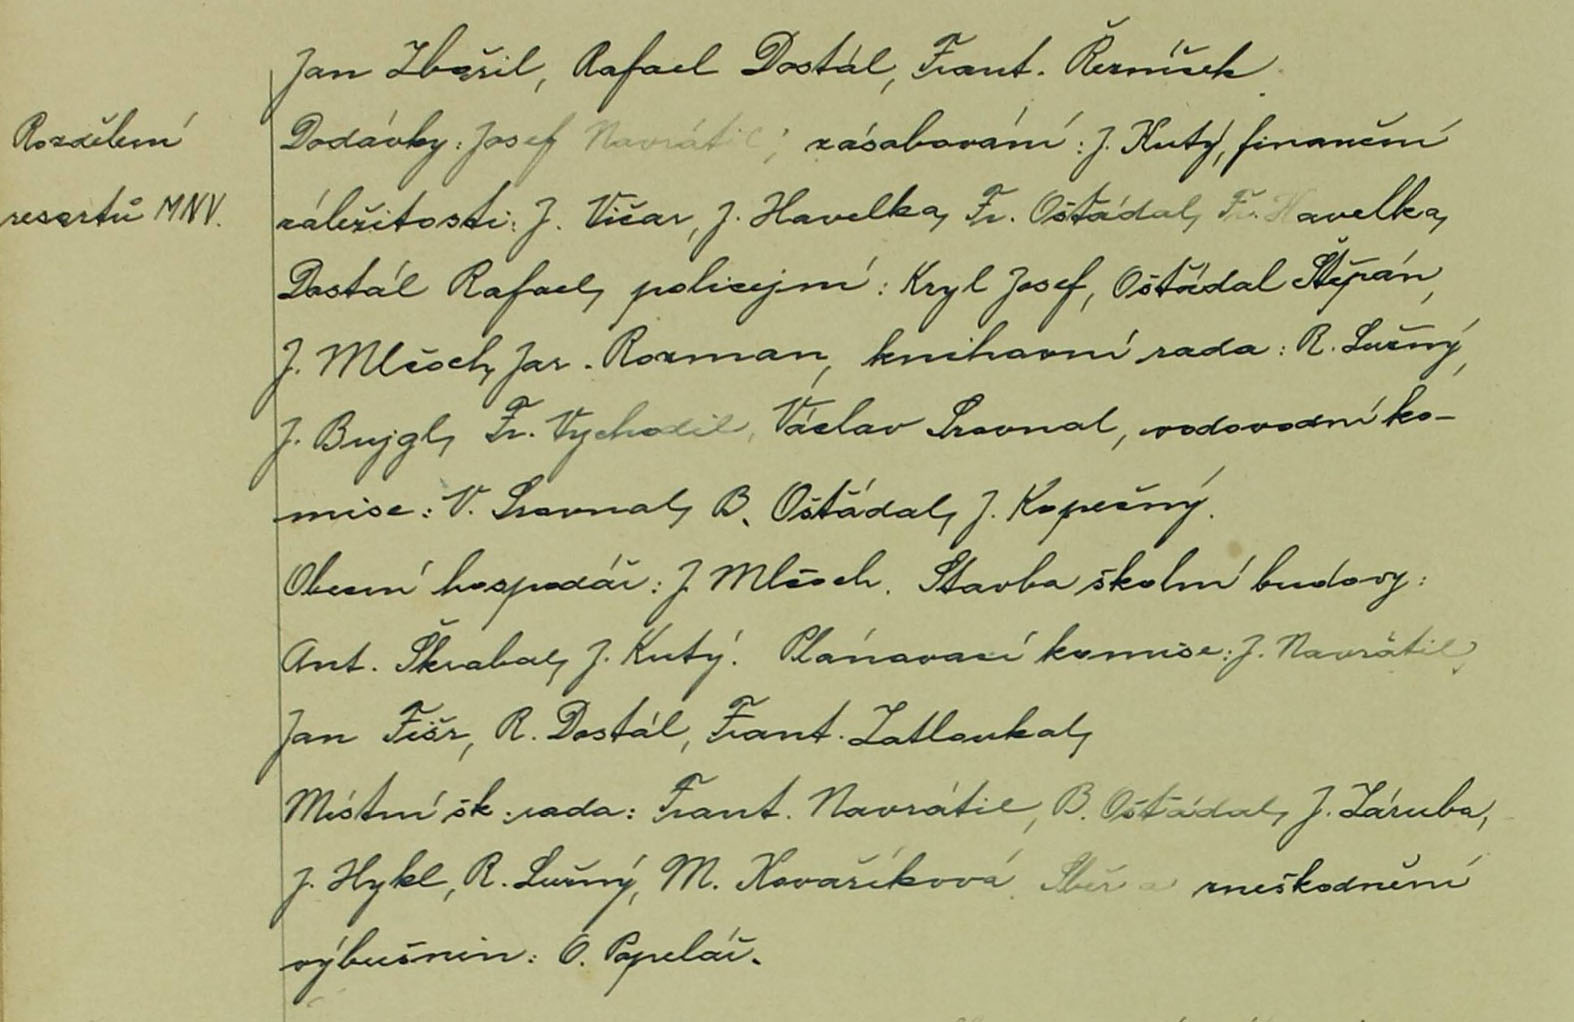 Jan Zbořil, Rafael Dostál, Frant. Řezníček.
Rozdělení
resortů MNV.
Dodávky: Josef Navrátil, zásobování: J. Kutý, finanční
záležitosti: J. Vičar, J. Havelka, Fr. Ošťádal, Fr. Havelka,
Dostál Rafael, policejní: Kryl Josef, Ošťádal Štěpán,
J. Mlčoch, Jar. Rozman, knihovní rada: R. Lučný,
J. Bujgl, Fr. Vychodil, Václav Srovnal, vodovodní ko-
mise: V. Srovnal, B. Ošťádal, J. Kopečný.
Obecní hospodář: J. Mlčoch. Stavba školní budovy:
Ant. Škrabal, J. Kutý. Plánovací komise: J. Navrátil,
Jan Fišr, R. Dostál, Frant. Zatloukal,
Místní šk. rada: Frant. Navrátil, B. Ošťádal, J. Záruba,
J. Hykl, R. Lučný, M. Kovaříková. Sběr a zneškodnění
výbušnin: O. Popelář.